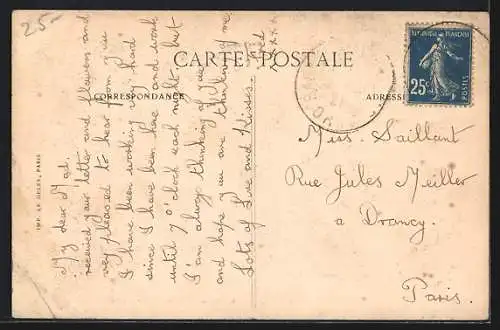 25-
CARTE POSTALE
CORRESPONDANCE
ADRESSE
IMP. LE DELEY, PARIS
My dear Mat.
received your letter and flowers and
very pleased to hear from you
I have been working very hard
since I have been here and work
until 7 o'clock each night. but
I am always thinking of you
and hope you are thinking of me
Lots of Love and Kisses.
x x x x
25c
POSTES
Miss. Saillant
Rue Jules Meiller
a Drancy.
Paris.